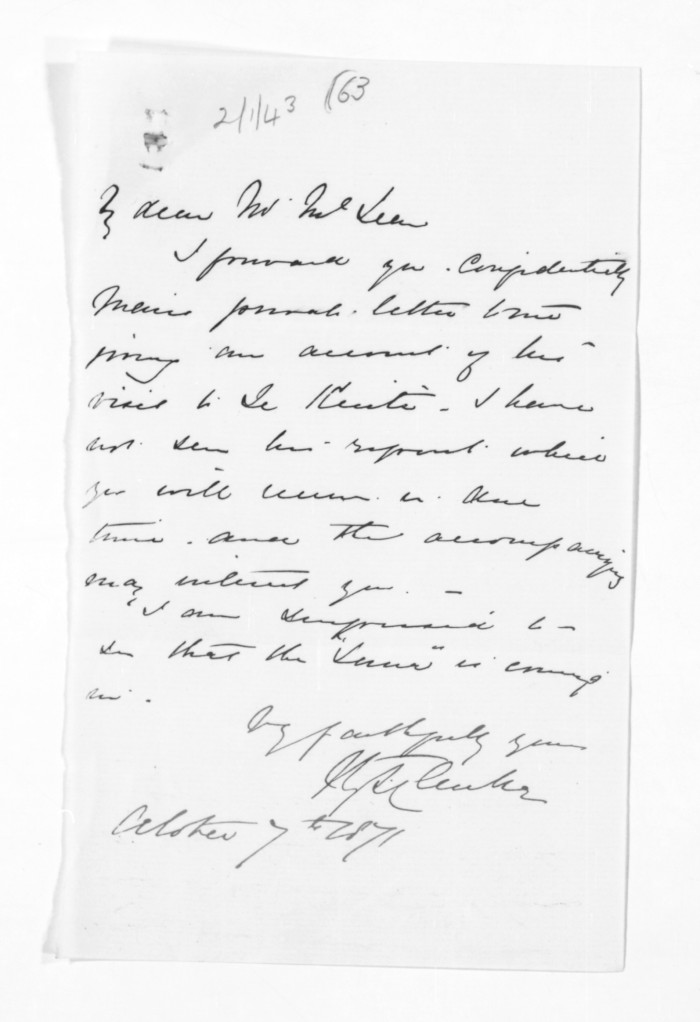 2/1/43 (63
My dear Mr McLean
I forward you confidentially
Mairs private letter to me
giving an account of his
visit to Te Kuiti - I have
not seen his report which
you will receive in due
time - and the accompanying
may interest you. -
I am surprised to -
see that the "Luna" is coming
in.
Very faithfully yours
H. T. Clarke
October 7th 1871